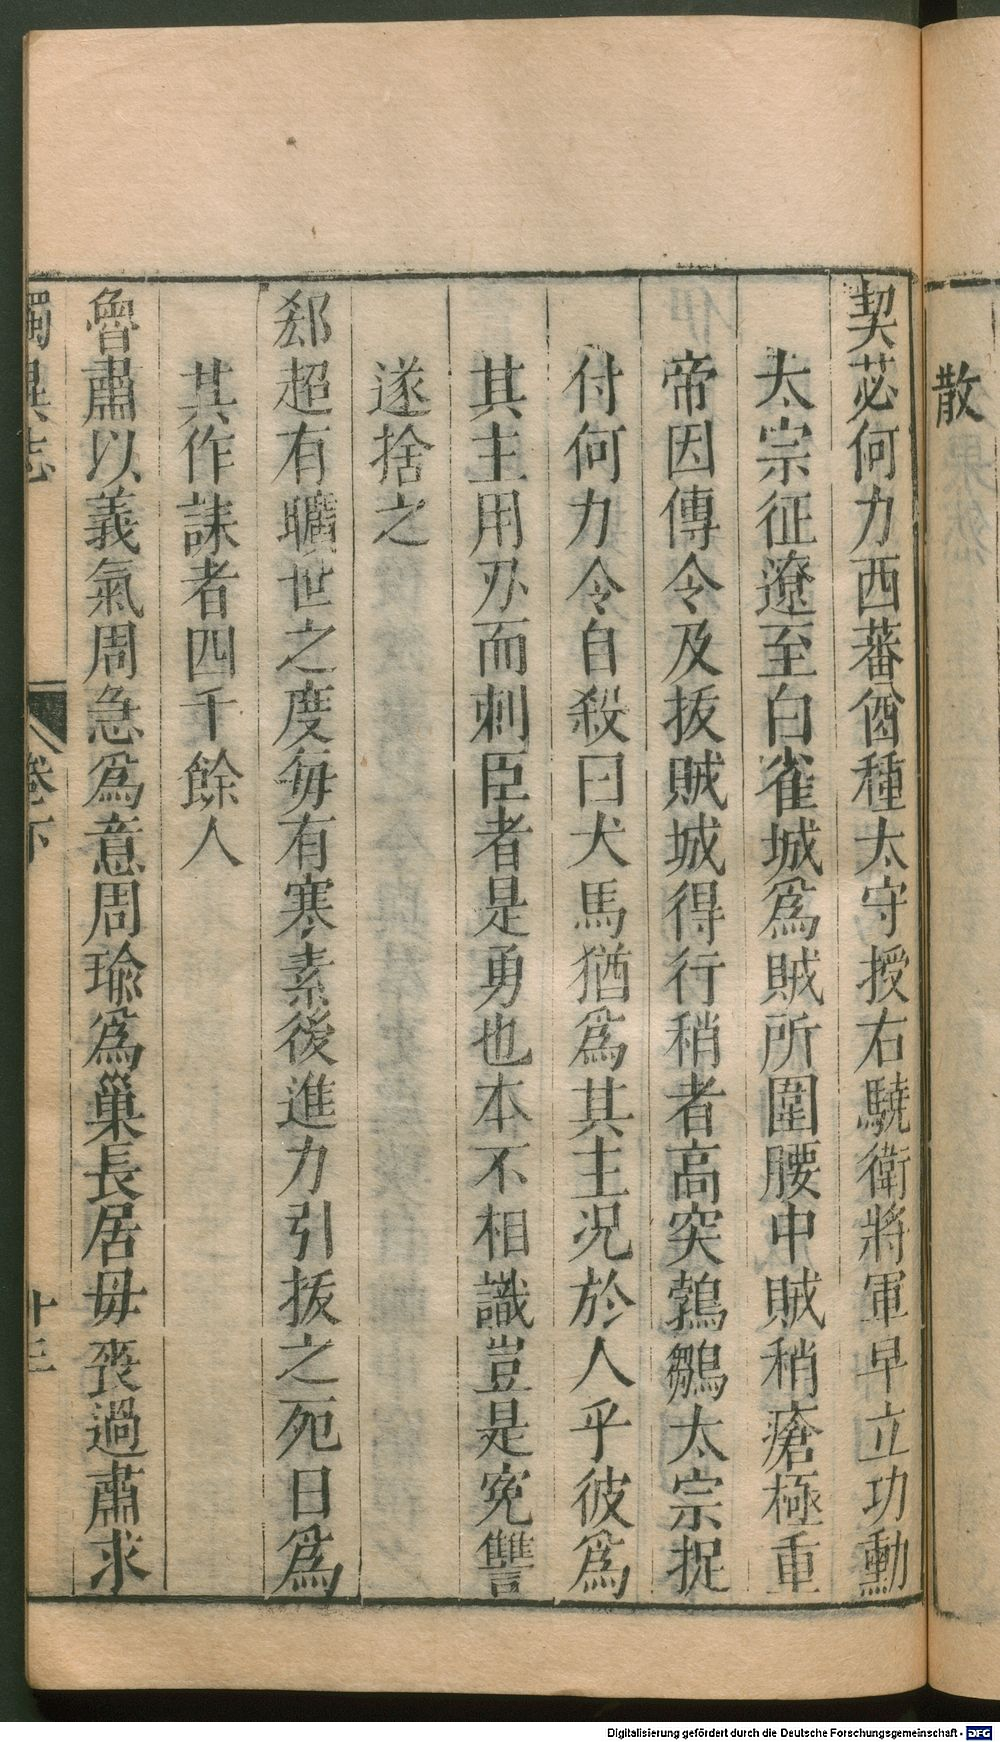 散
契苾何力西蕃酋種太守授右驍衛將軍早立功勳
太宗征遼至白雀城爲賊所圍腰中賊稍瘡極重
帝因傳令及拔賊城得行稍者高突鶉鶵太宗捉
付何力令自殺曰犬馬猶爲其主况於人乎彼爲
其主用刅而刺臣者是勇也本不相識豈是寃讐
遂捨之
郄超有曠世之度毎有寒素後進力引拔之死日爲
其作誄者四千餘人
魯肅以義氣周急爲意周瑜爲巢長居毋喪過肅求
獨異志 卷下 十三
Digitalisierung gefördert durch die Deutsche Forschungsgemeinschaft - DFG